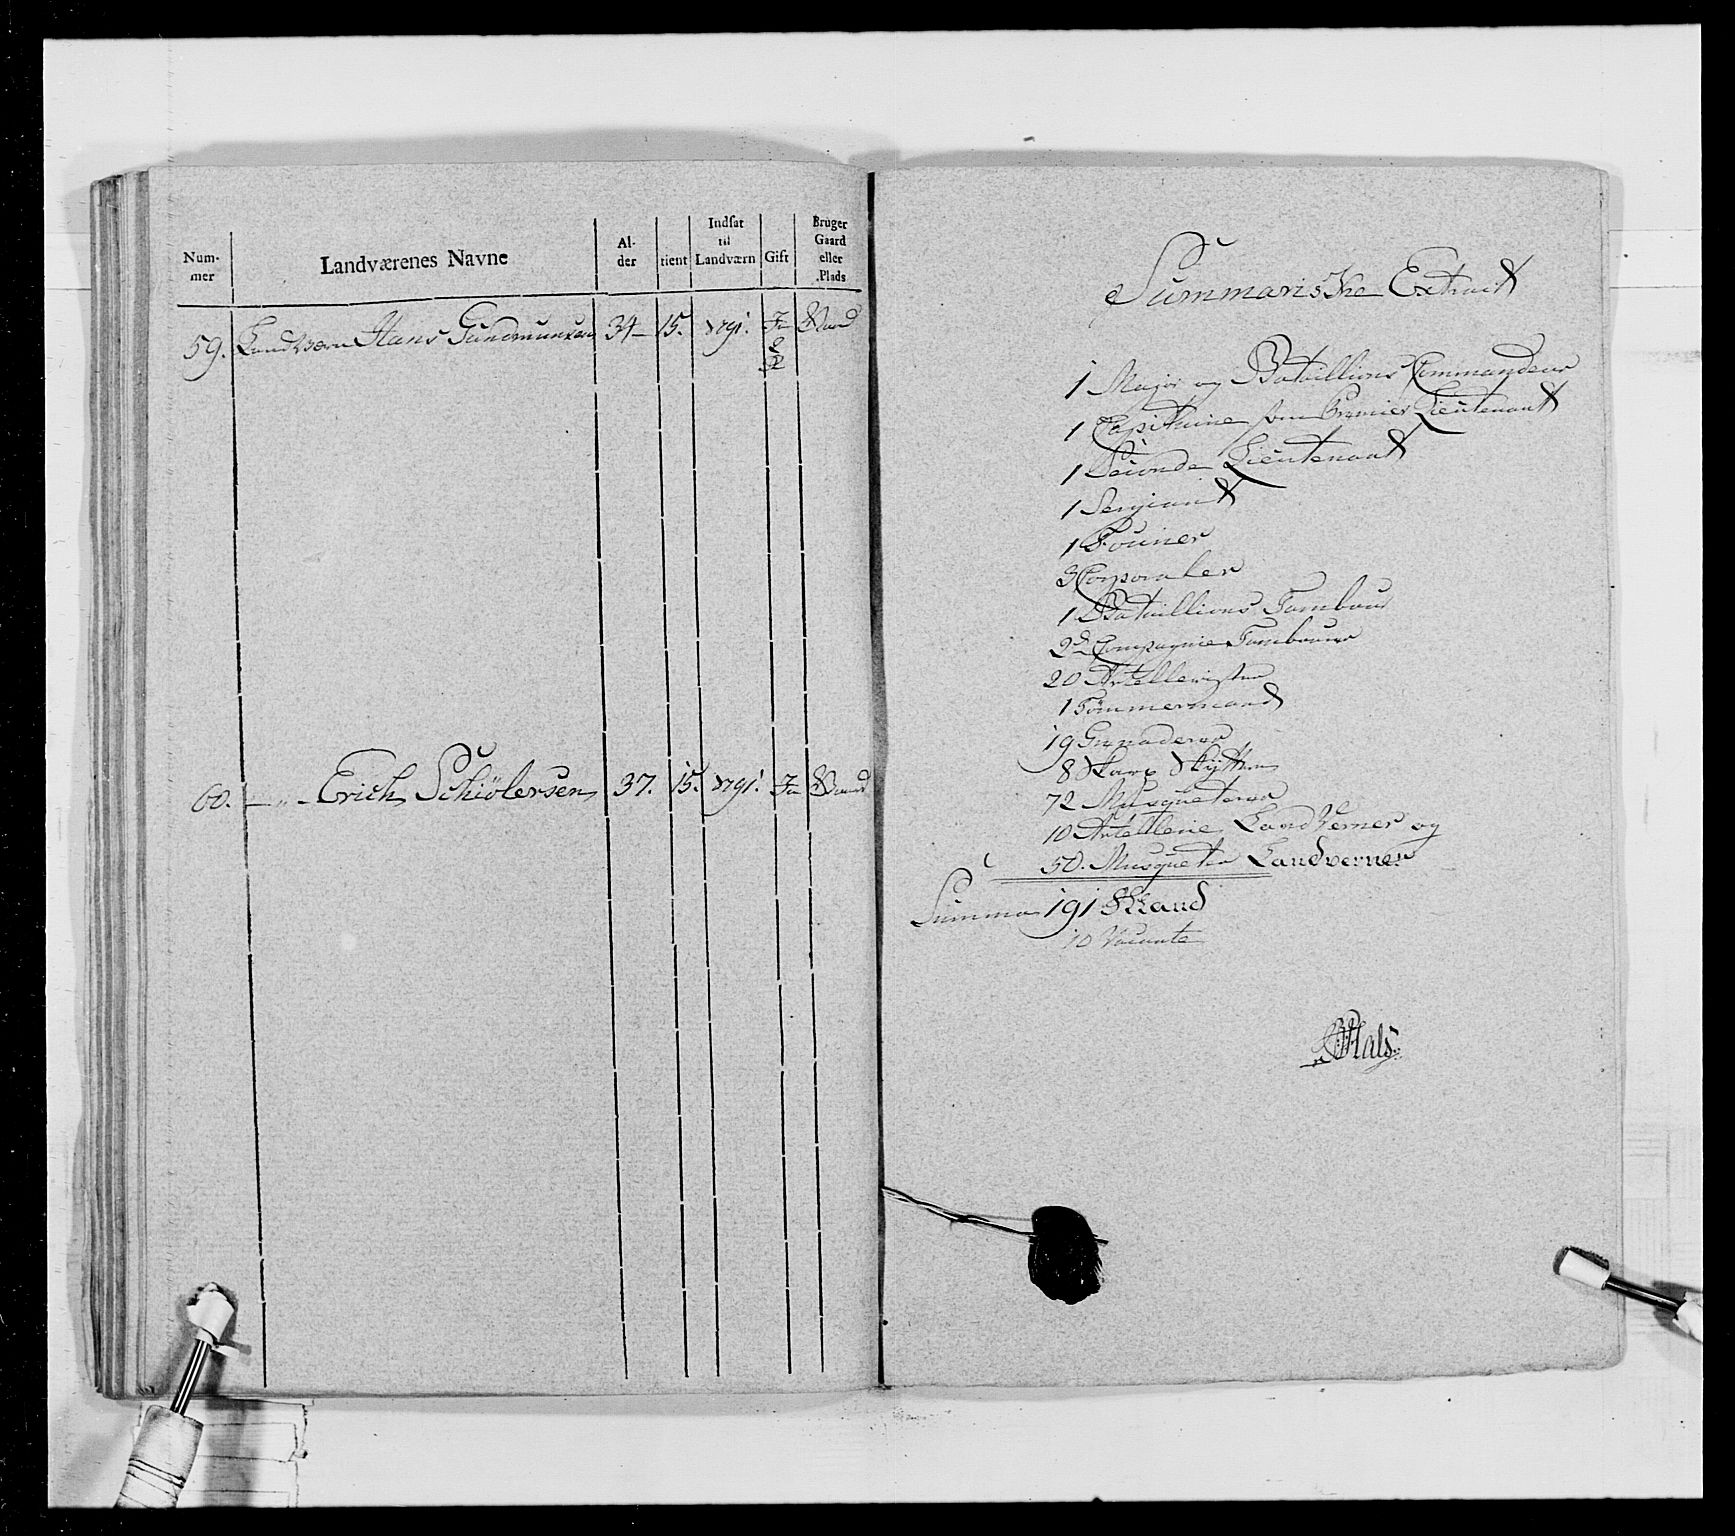 Num-
mer
Landværenes Navne
Al-
der
tient
Indsat
til
Landværn
Gift
Bruger
Gaard
eller
Plads
59. Landværn Hans Gundmunsen 34- 15. 1791. Ja
60. — „ — Erich Schiölersen 37. 15. 1791. Ja
Summariske Extract
1 Major og Bataillions Commandeur
1 Capithine som Premier Lieutenant
1 Seconde Lieutenant
1 Sergiant
1 Fourier
3 Corporaler
1 Bataillions Tambour
2de Compagnie Tambourer
20 Artellerister
1 Tömmermand
19 Grenaderer
8 Skarp Skÿttere
72 Musqueterer
10 Artellerie Landverner og
50. Musqueter Landverner
Summa 191 Mand
10 Vacante
Hals